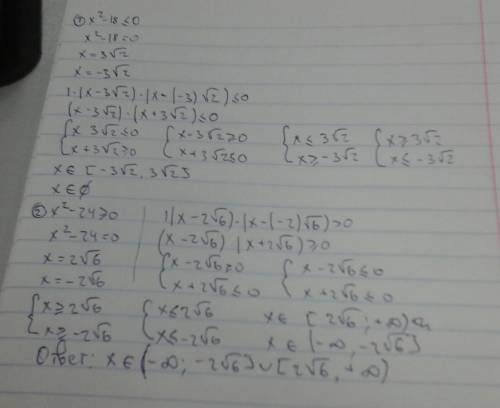 ① x²-18≤0
x²-18=0
x=3√2
x=-3√2
1·(x-3√2)·(x-(-3)√2)≤0
(x-3√2)·(x+3√2)≤0
{x-3√2≤0 {x-3√2≥0 {x≤3√2 {x≥3√2
{x+3√2≥0 {x+3√2≤0 {x≥-3√2 {x≤-3√2
x∈[-3√2, 3√2]
x∈∅
② x²-24≥0
x²-24=0
x=2√6
x=-2√6
1(x-2√6)·(x-(-2)√6)≥0
(x-2√6)(x+2√6)≥0
{x-2√6≥0 {x-2√6≤0
{x+2√6≤0 {x+2√6≤0
{x≥2√6 {x≤2√6 x∈[2√6;+∞)
{x≥-2√6 {x≤-2√6 x∈(-∞,-2√6]
Ответ: x∈(-∞;-2√6]∪[2√6,+∞)